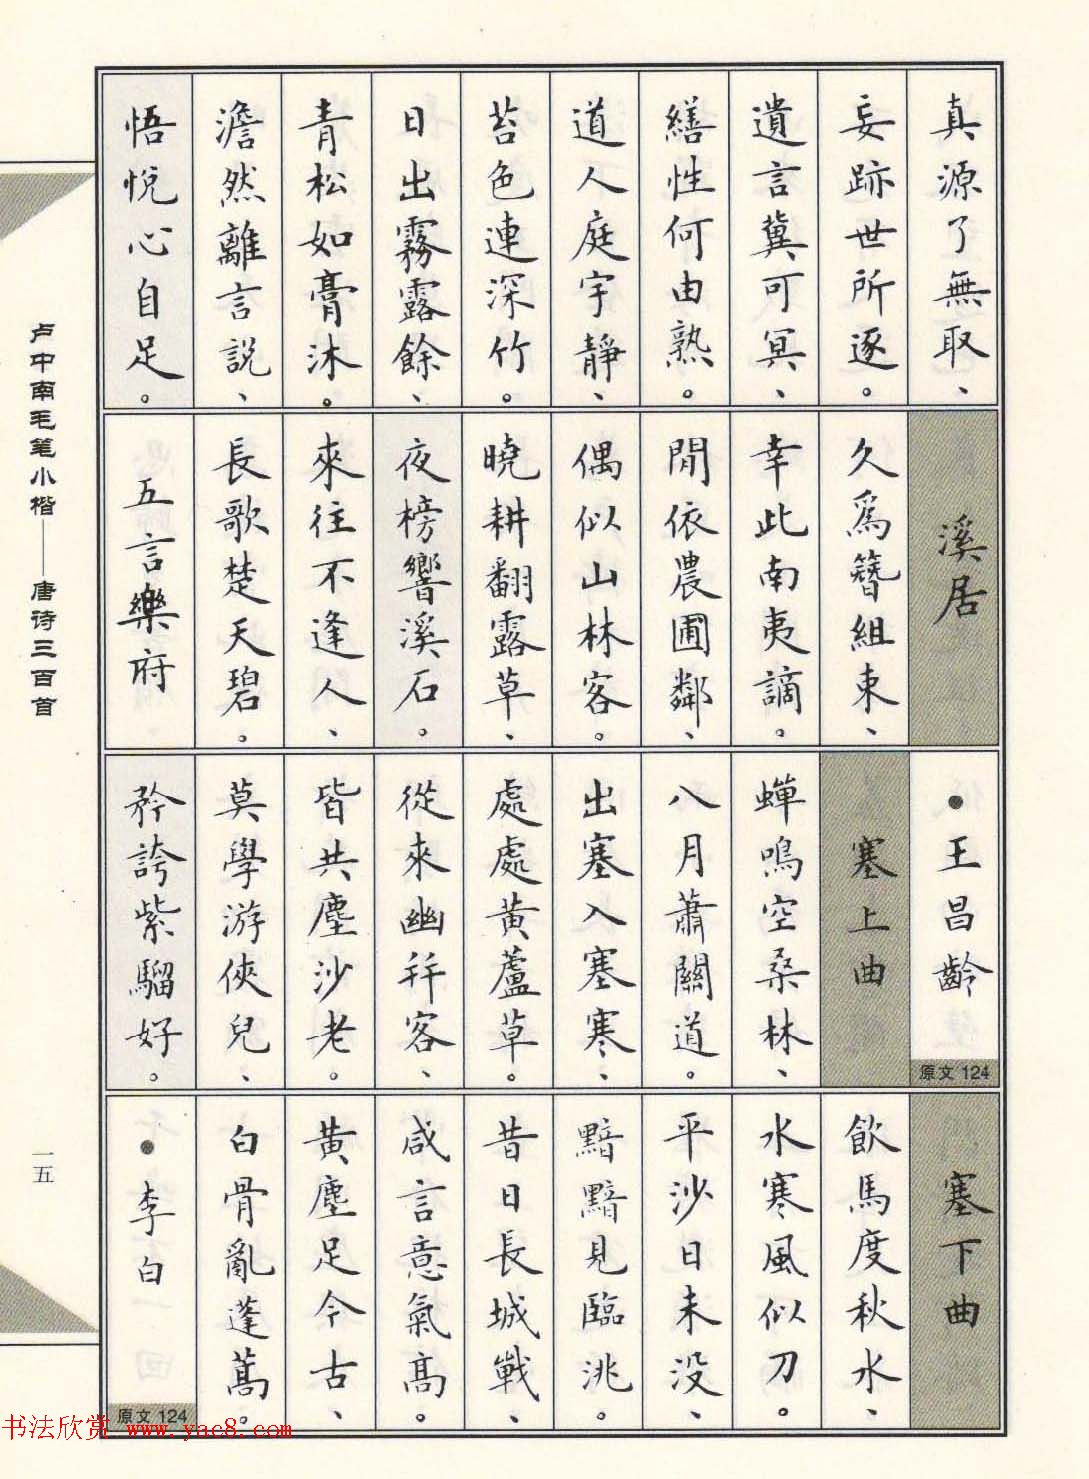 真源了無取、
妄跡世所逐。
遺言冀可冥、
繕性何由熟。
道人庭宇靜、
苔色連深竹。
日出霧露餘、
青松如膏沐。
澹然離言說、
悟悅心自足。
溪居
久爲簪組束、
幸此南夷謫。
閒依農圃鄰、
偶似山林客。
曉耕翻露草、
夜榜響溪石。
來往不逢人、
長歌楚天碧。
五言樂府
●王昌齡
原文124
塞上曲
蟬鳴空桑林、
八月蕭關道。
出塞入塞寒、
處處黃蘆草。
從來幽并客、
皆共塵沙老。
莫學游俠兒、
矜誇紫騮好。
塞下曲
飲馬度秋水、
水寒風似刀。
平沙日未没、
黯黯見臨洮。
昔日長城戰、
咸言意氣高。
黃塵足今古、
白骨亂蓬蒿。
●李白
原文124
卢中南毛笔小楷——唐诗三百首
一五
书法欣赏 www.yac8.com